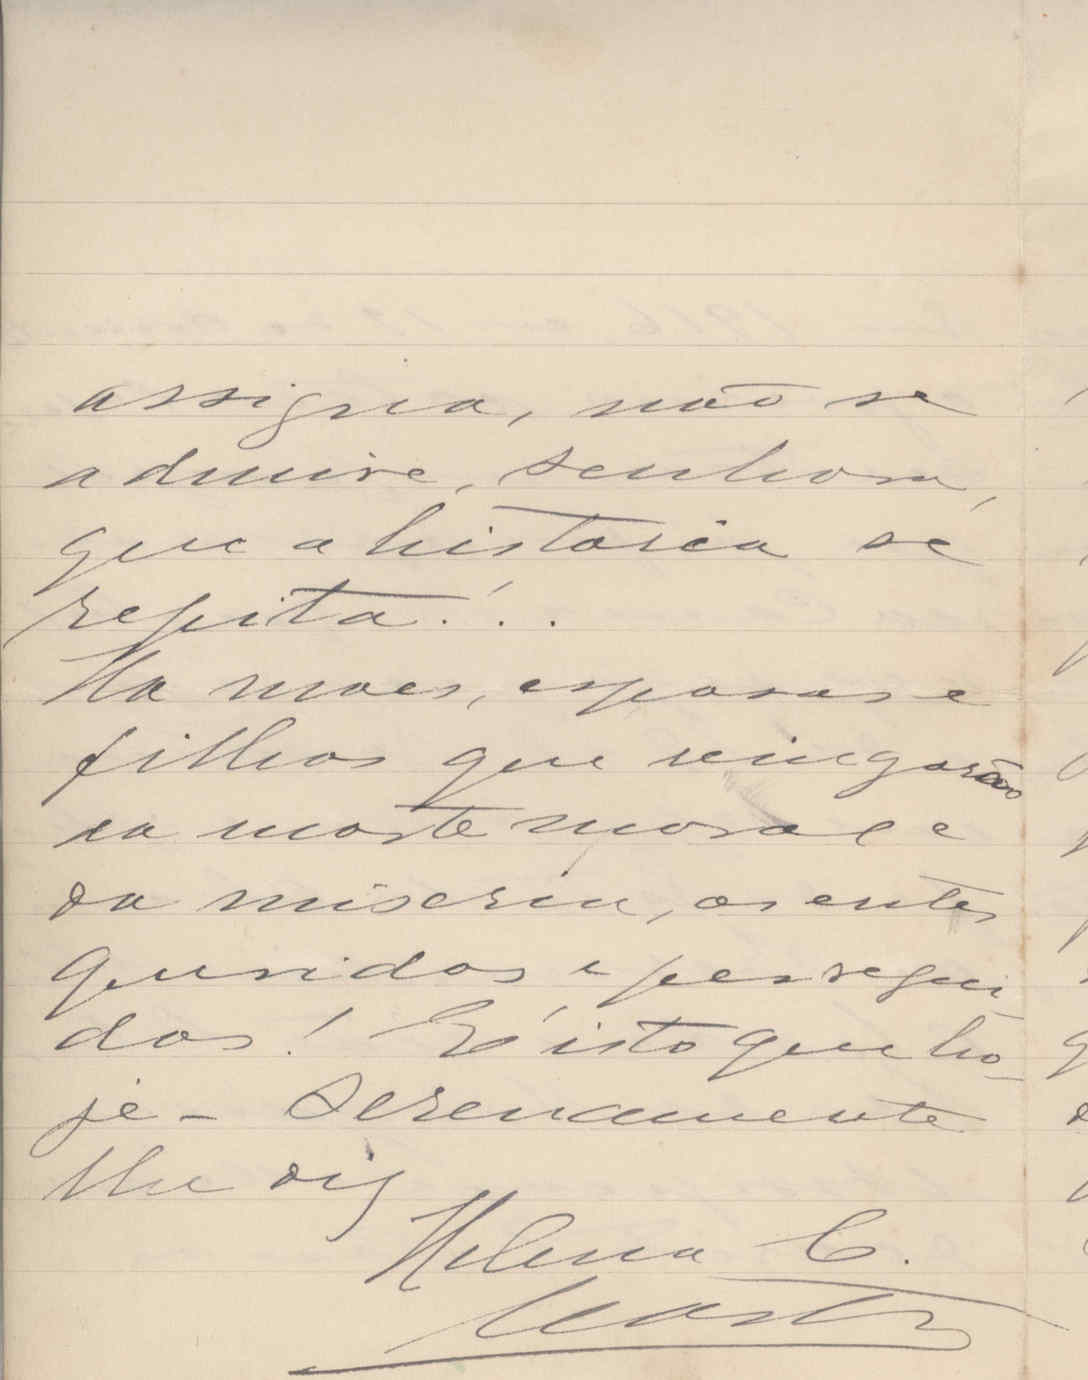 assigna, não se
admire, senhora,
que a historia se
repita!...
Ha mães, esposas e
filhos que vingarão
da morte moral e
da miseria, os entes
queridos e persegui
dos! E' isto que ho-
je - serenamente
lhe diz
Helena C.